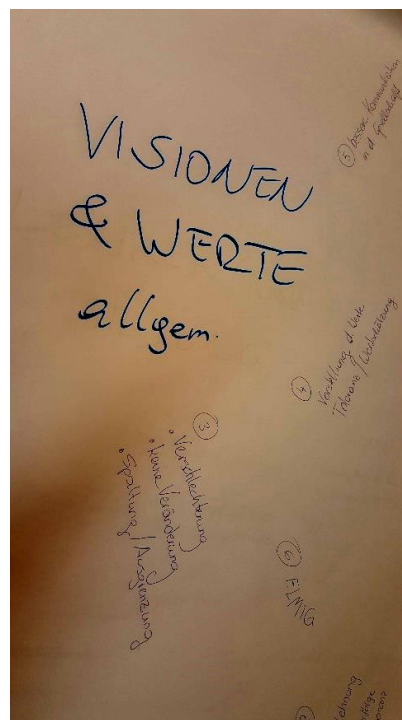 VISIONEN
& WERTE
allgem.
⑤ besser. Kommunikation
in d. Gesellschaft
④ d. Werte
Toleranz / Wertschätzung
③
• Verschlechterung
• keine Veränderung
• Spaltung / Ausgrenzung
⑥ ELMIG